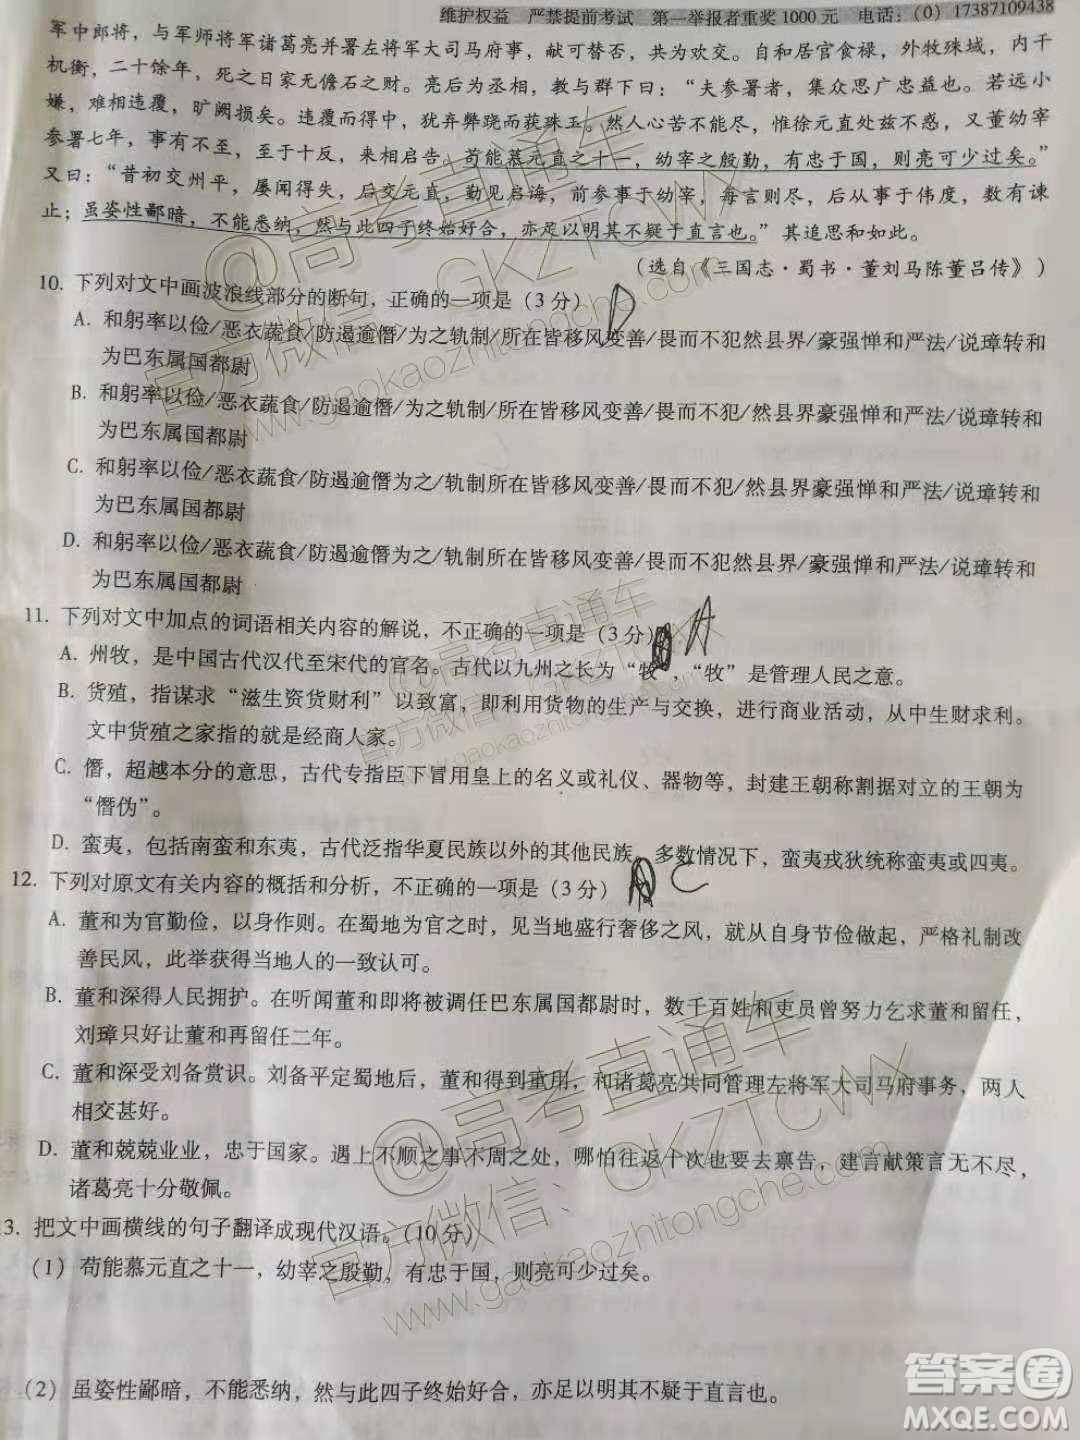 维护权益 严禁提前考试 第一举报者重奖1000元 电话：(0) 17387109438
军中郎将，与军师将军诸葛亮并署左将军大司马府事，献可替否，共为欢交。自和居官食禄，外牧殊域，内干
机衡，二十馀年，死之日家无儋石之财。亮后为丞相，教与群下曰：“夫参署者，集众思广忠益也。若远小
嫌，难相违覆，旷阙损矣。违覆而得中，犹弃弊跷而获珠玉。然人心苦不能尽，惟徐元直处兹不惑，又董幼宰
参署七年，事有不至，至于十反，来相启告。苟能慕元直之十一，幼宰之殷勤，有忠于国，则亮可少过矣。”
又曰：“昔初交州平，屡闻得失，后交元直，勤见启诲，前参事于幼宰，每言则尽，后从事于伟度，数有谏
止；虽姿性鄙暗，不能悉纳，然与此四子终始好合，亦足以明其不疑于直言也。”其追思和如此。
（选自《三国志·蜀书·董刘马陈董吕传》）
10. 下列对文中画波浪线部分的断句，正确的一项是（3分） D
A. 和躬率以俭/恶衣蔬食/防遏逾僭/为之轨制/所在皆移风变善/畏而不犯然县界/豪强惮和严法/说璋转和
为巴东属国都尉
B. 和躬率以俭/恶衣蔬食/防遏逾僭/为之轨制/所在皆移风变善/畏而不犯/然县界豪强惮和严法/说璋转和
为巴东属国都尉
C. 和躬率以俭/恶衣蔬食/防遏逾僭为之/轨制所在皆移风变善/畏而不犯/然县界豪强惮和严法/说璋转和
为巴东属国都尉
D. 和躬率以俭/恶衣蔬食/防遏逾僭为之/轨制所在皆移风变善/畏而不犯然县界/豪强惮和严法/说璋转和
为巴东属国都尉
11. 下列对文中加点的词语相关内容的解说，不正确的一项是（3分） A
A. 州牧，是中国古代汉代至宋代的官名。古代以九州之长为“牧”，“牧”是管理人民之意。
B. 货殖，指谋求“滋生资货财利”以致富，即利用货物的生产与交换，进行商业活动，从中生财求利。
文中货殖之家指的就是经商人家。
C. 僭，超越本分的意思，古代专指臣下冒用皇上的名义或礼仪、器物等，封建王朝称割据对立的王朝为
“僭伪”。
D. 蛮夷，包括南蛮和东夷，古代泛指华夏民族以外的其他民族。多数情况下，蛮夷戎狄统称蛮夷或四夷。
12. 下列对原文有关内容的概括和分析，不正确的一项是（3分） C
A. 董和为官勤俭，以身作则。在蜀地为官之时，见当地盛行奢侈之风，就从自身节俭做起，严格礼制改
善民风，此举获得当地人的一致认可。
B. 董和深得人民拥护。在听闻董和即将被调任巴东属国都尉时，数千百姓和吏员曾努力乞求董和留任，
刘璋只好让董和再留任二年。
C. 董和深受刘备赏识。刘备平定蜀地后，董和得到重用，和诸葛亮共同管理左将军大司马府事务，两人
相交甚好。
D. 董和兢兢业业，忠于国家。遇上不顺之事不周之处，哪怕往返十次也要去禀告，建言献策言无不尽，
诸葛亮十分敬佩。
3. 把文中画横线的句子翻译成现代汉语。（10分）
（1）苟能慕元直之十一，幼宰之殷勤，有忠于国，则亮可少过矣。
（2）虽姿性鄙暗，不能悉纳，然与此四子终始好合，亦足以明其不疑于直言也。
@高考直通车
官方微信：GKZTCWX
www.gaokaozhitongche.com
官方微信、GKZTCWX
www.gaokaozhitongche.com
@高考直通车
官方微信、GKZTCWX
www.gaokaozhitongche.com
答案圈
MXQE.COM